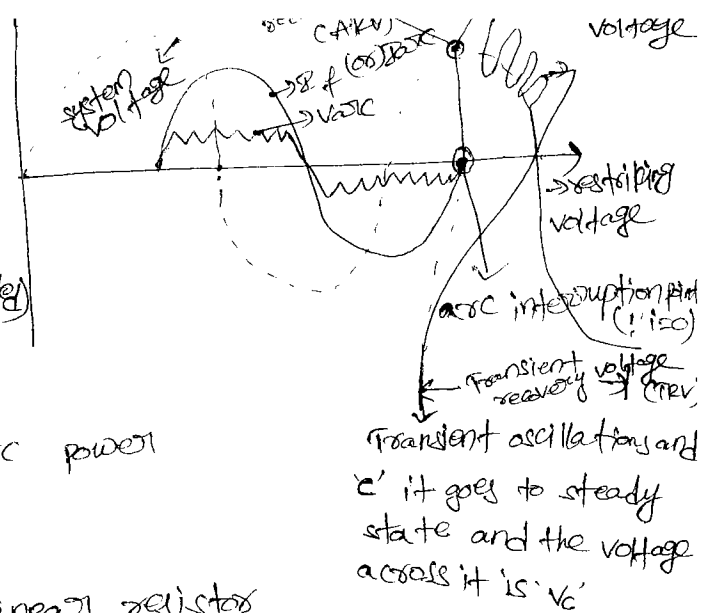 voltage
CAIKV)
(or)
system
voltage
→ Varc
→ restriking
voltage
arc interruption point
(∵ i=0)
Transient voltage
recovery (TRV)
c power
Transient oscillations and
'c' it goes to steady
state and the voltage
across it is 'Vc'
near resistor